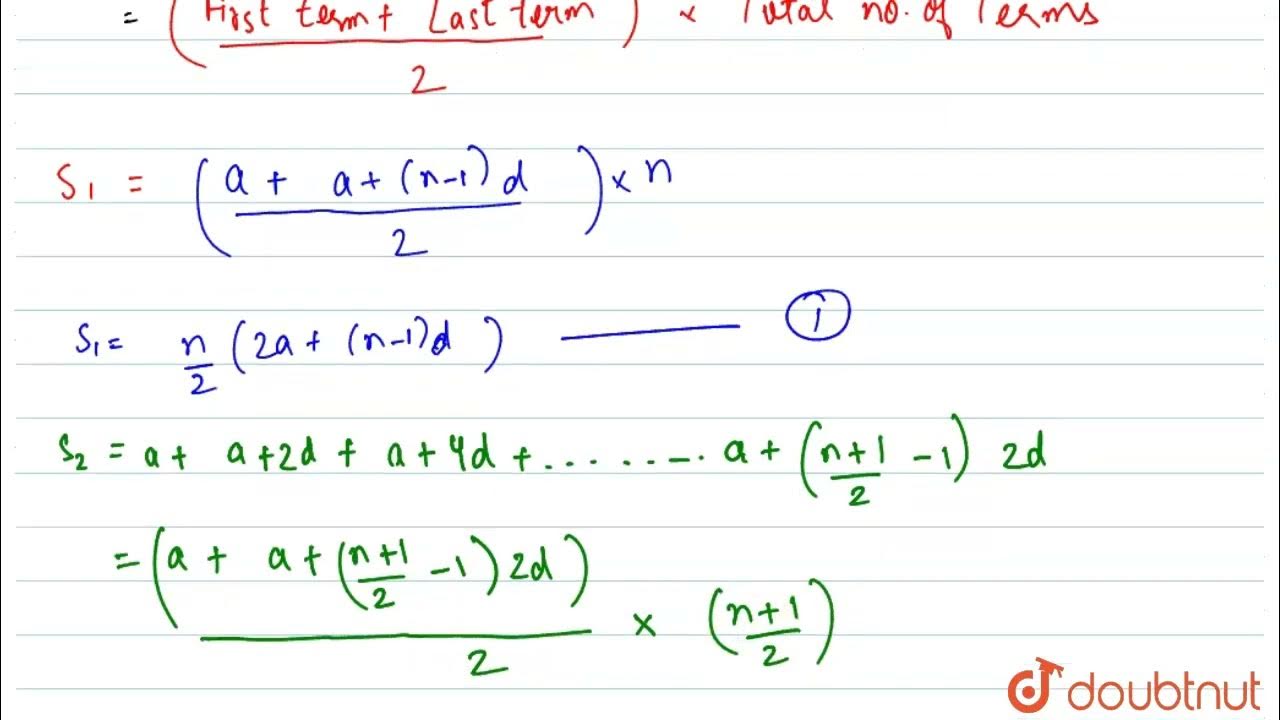 = ( First term + Last term / 2 ) × Total no. of Terms
S₁ = ( a + a + (n-1) d / 2 ) × n
S₁ = n/2 ( 2a + (n-1)d ) ——— ①
S₂ = a + a+2d + a+4d + ........ a + ( n+1/2 -1) 2d
= ( a + a + ( n+1/2 -1) 2d ) / 2 × ( n+1/2 )
doubtnut